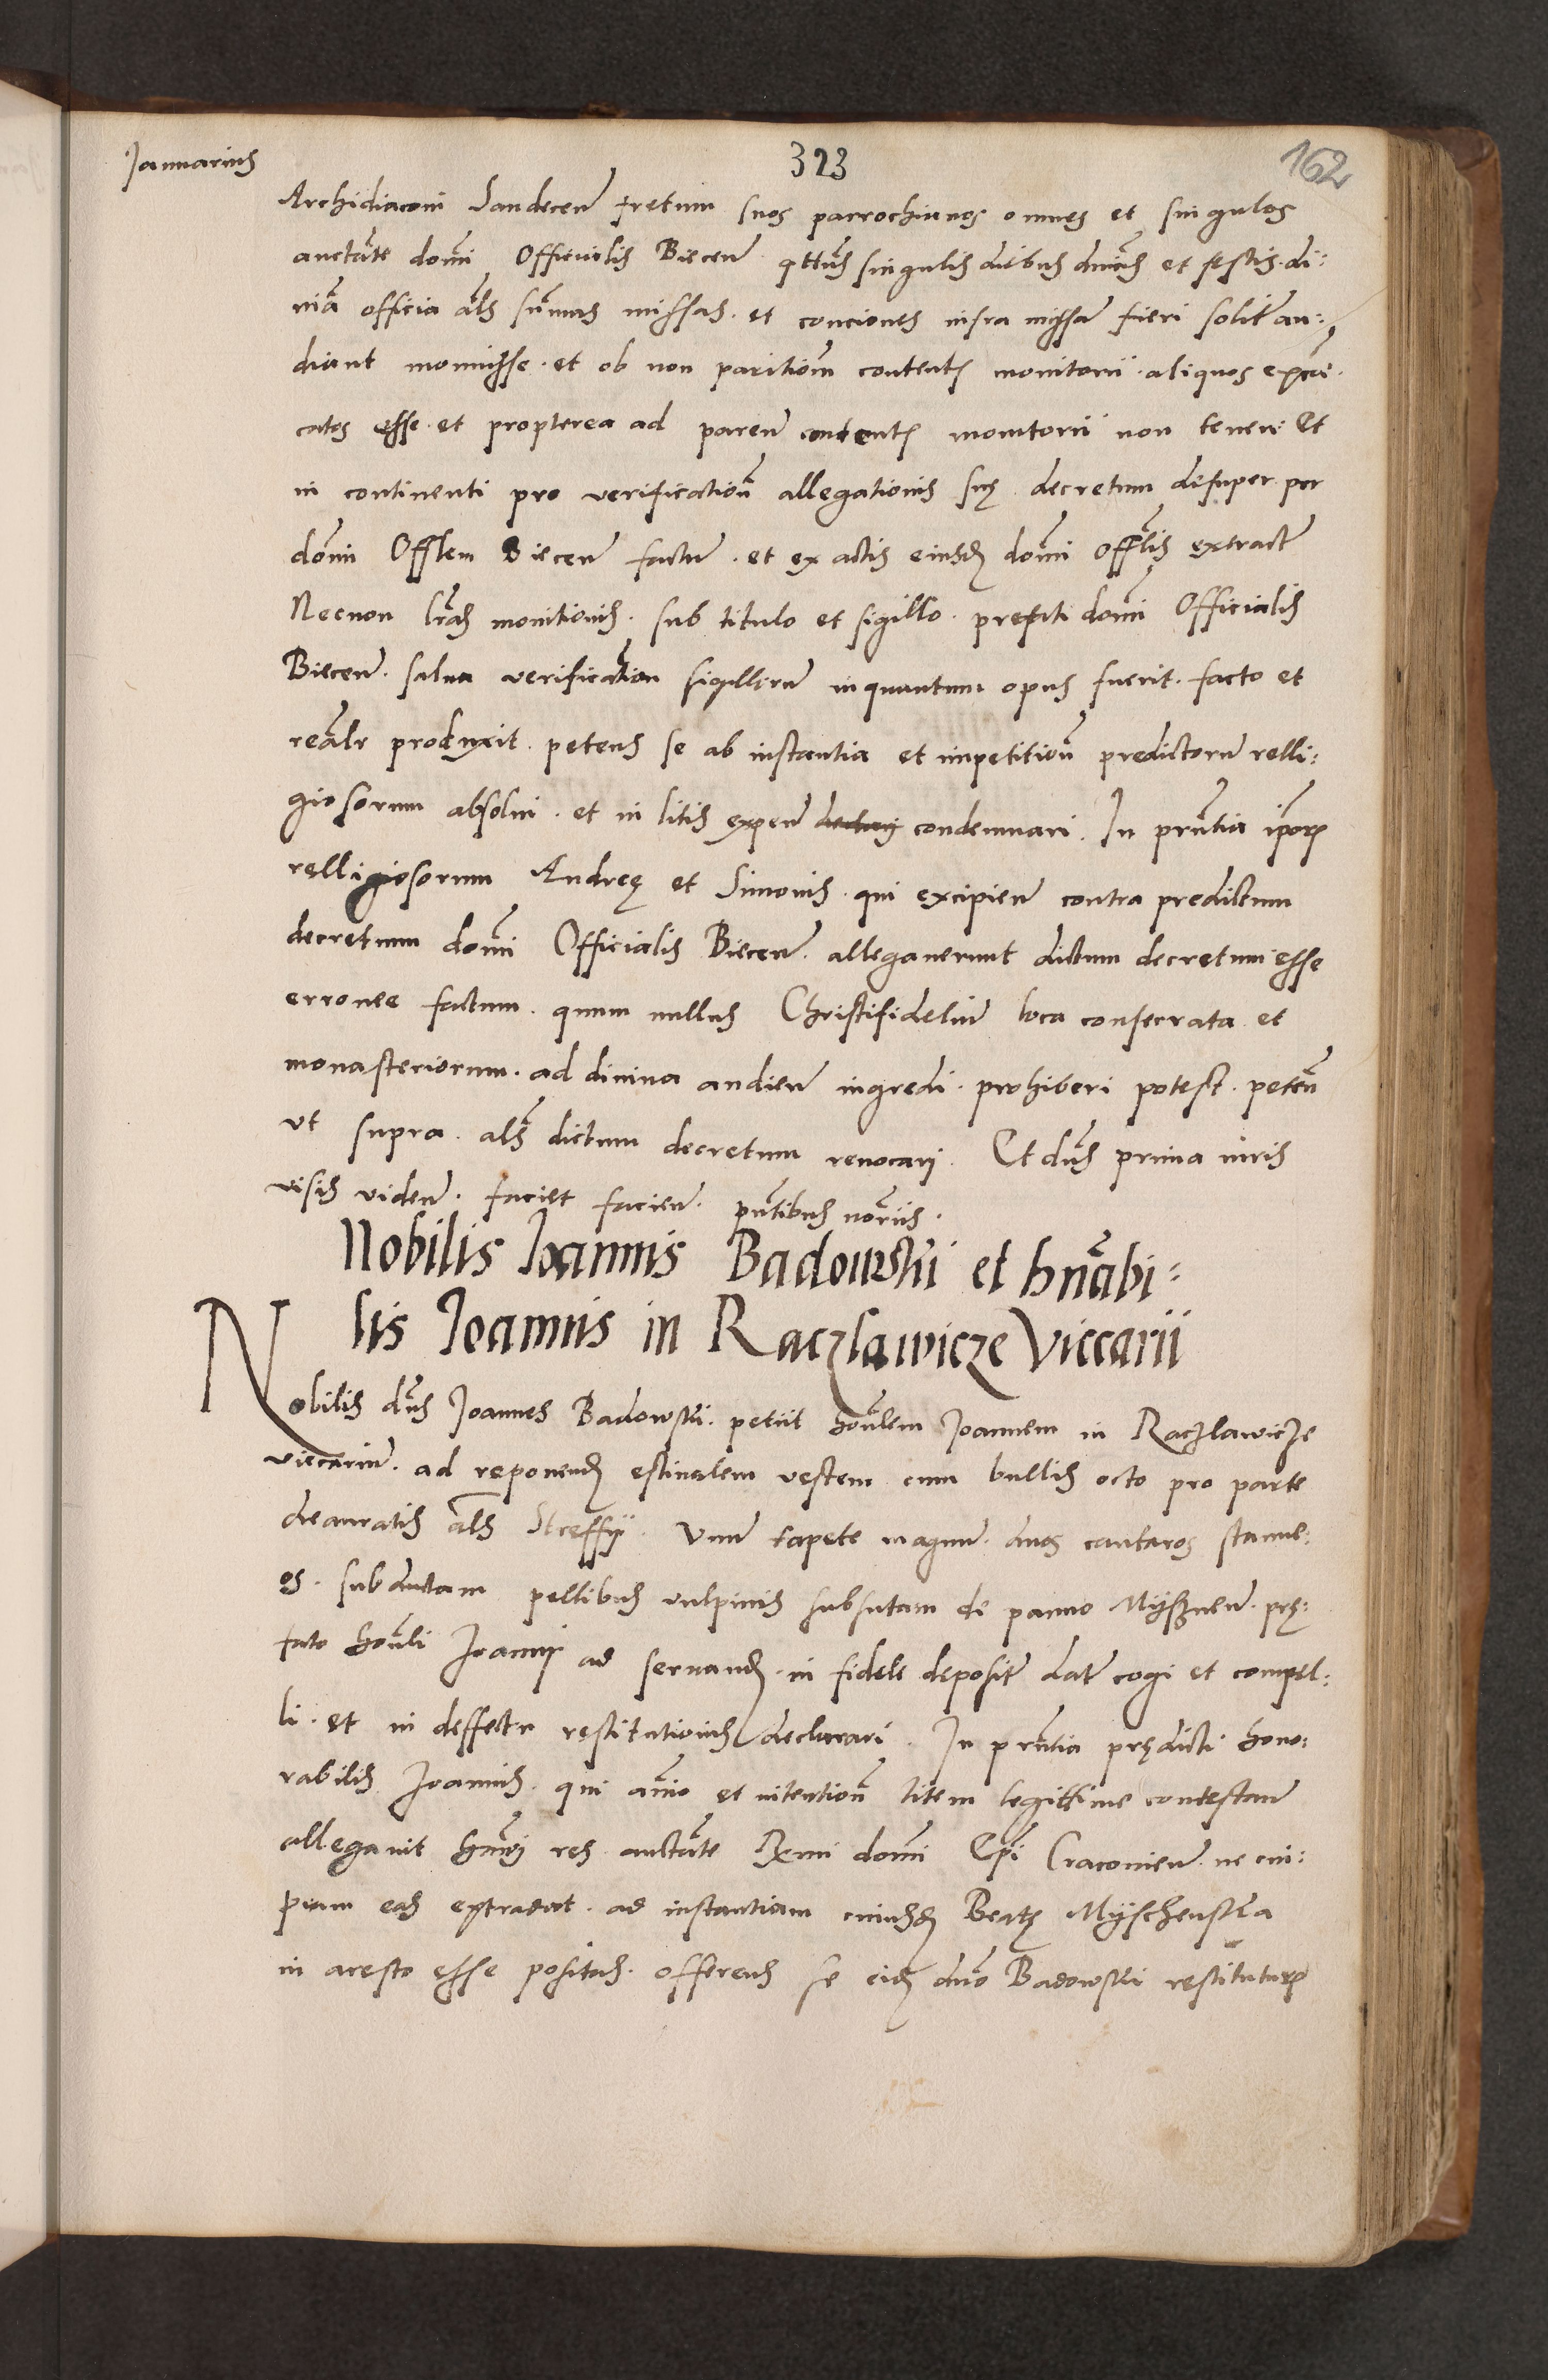 Januarius
323
162
Archidiaconi Sandecen̄ fretum suos parrochianos omnes et singulos
auctāte dom̄i Officialis Biecen̄ q̄ttūs singulis diebus dn̄icis et festis di:
uīa officia als sūmas missas. et conciones infra missā fieri solit̄ au:
diant monuisse. et ob non paritiōm contentꝭ monitorii. aliquos exc̄oi:
catos esse. et propterea ad paren̄ contentꝭ monitorii non teneri Et
in continenti pro verificatiōn̄ allegationis suę decretum desuper per
dom̄i Offlem Biecen̄ factū. et ex actis eiusdꝫ dom̄i offlis extract̄
Necnon lrās monitionis. sub titulo et sigillo prefati dom̄i Officialis
Biecen̄. salua verificatiōn sigillorū inquantum opus fuerit. facto et
reālr produxit. petens se ab instantia et impetitiōn̄ predictorū relli:
giosorum absolui. et in litis expen̄ condemnari. In pn̄tia ip̄orꝝ
relligiosorum Andreę et Simonis. qui excipien̄ contra predictum
decretum dom̄i Officialis Biecen̄. allegauerunt dictum decretum esse
erronee factum. quum nullus Christifideliū loca consecrata et
monasteriorum. ad diuina audien̄ ingredi. prohiberi potest. peteñ
vt supra. als dictum decretum reuocari. Et dn̄s prima iuris
visis viden̄. faciet facien̄. pn̄tibus notriis.
Nobilis Joannis Badowski et hn̄rābi:
lis Joannis in Raczlawicze Viccarii
Nobilis dn̄s Joannes Badowski. petiit hon̄lem Joannem in Raczlawicze
viccariū. ad reponendꝫ estiualem vestem cum bullis octo pro parte
deauratis als Streffij. Vnū tapete magnū. duos cantaros stanne:
os. subductam pellibus vulpinis subsutam de panno Mijsznen̄. prę:
fato hon̄li Joanni ad seruandꝫ. in fidele deposit̄ dat̄ cogi et compel:
li. et in deffectu restitutionis declarari. In pn̄tia prędicti hono:
rabilis Joannis. qui an̄io et intentiōn̄ litem legittime contestan̄
allegauit hm̄oi res auctāte Rm̄i dom̄i Ep̄i Cracouien̄. ne cui:
piam eas extradat. ad instantiam cuiusdꝫ Beatꝭ Mijschenska
in aresto esse positas. offerens se eidꝫ dn̄o Badowski restiturꝝ